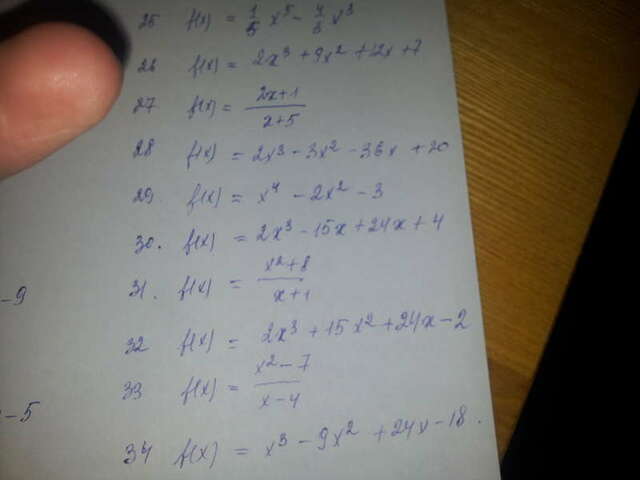 25 f(x) = 1/5 x⁵ - 4/3 x³
26 f(x) = 2x³ + 9x² + 12x + 7
27 f(x) = (2x+1)/(x+5)
28 f(x) = 2x³ - 3x² - 36x + 20
29 f(x) = x⁴ - 2x² - 3
30. f(x) = 2x³ - 15x + 24x + 4
31. f(x) = (x²+8)/(x+1)
-9
32 f(x) = 2x³ + 15x² + 24x - 2
33 f(x) = (x²-7)/(x-4)
-5
34 f(x) = x³ - 9x² + 24x - 18.